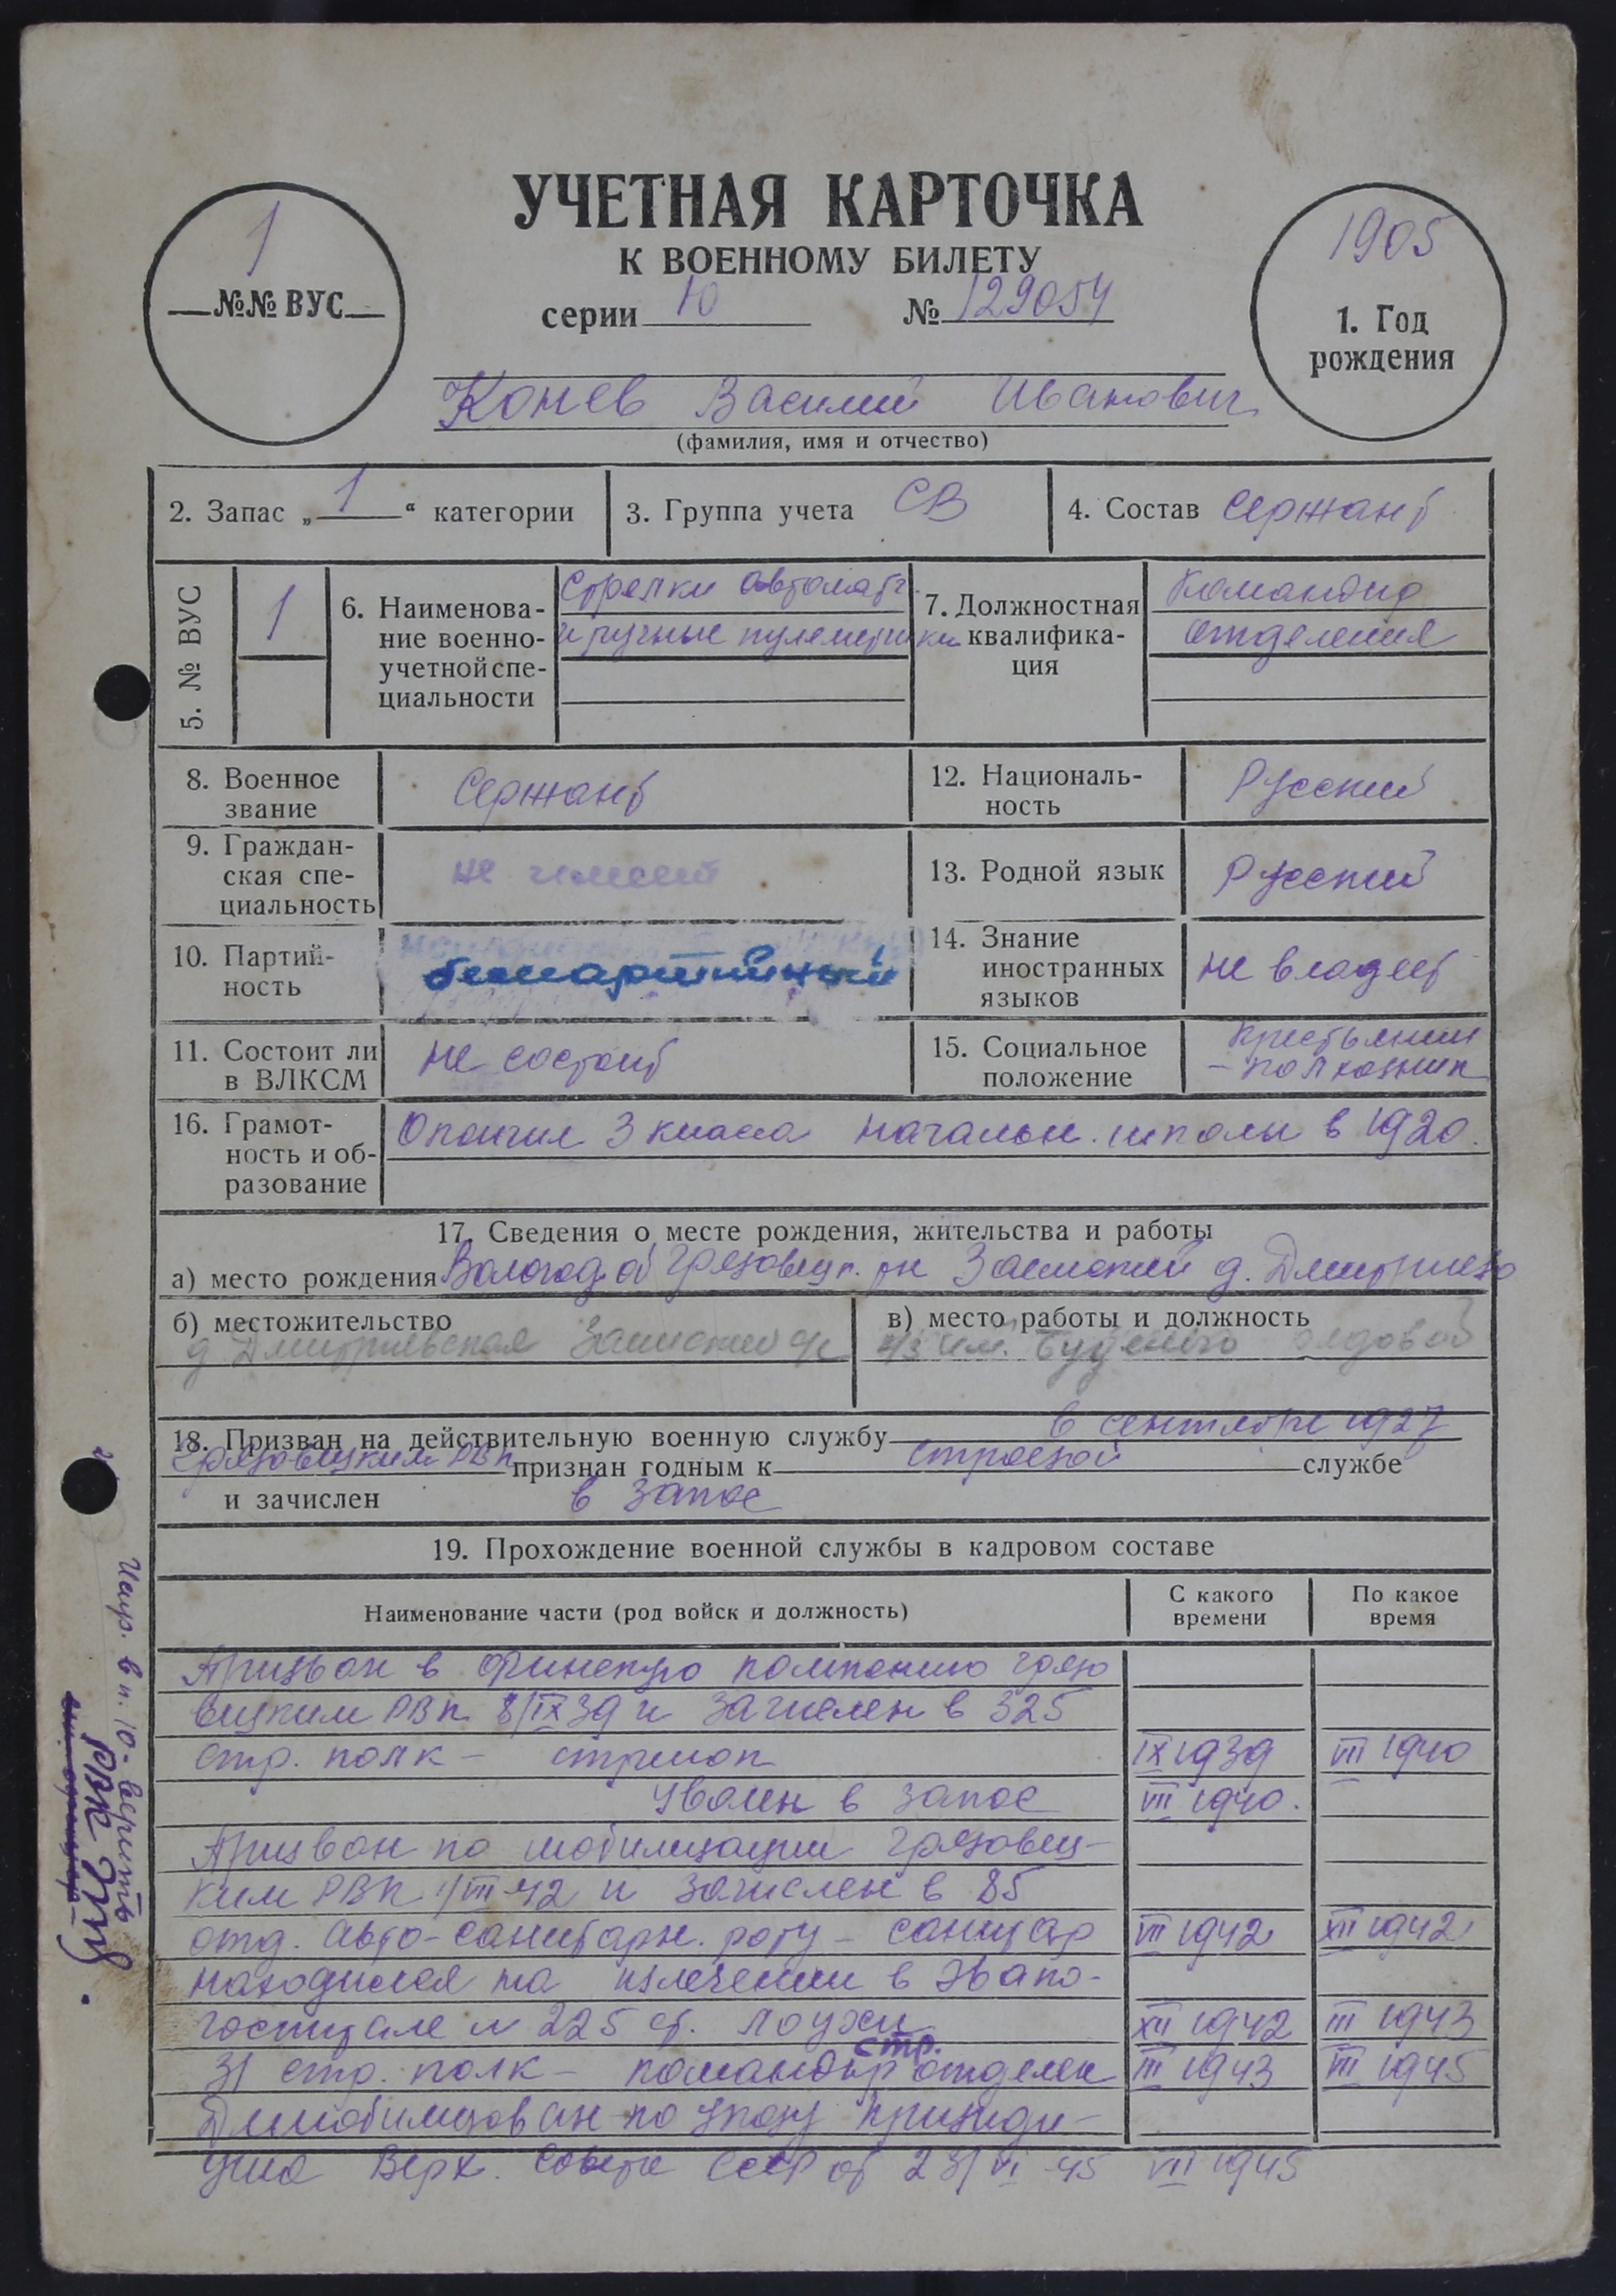 УЧЕТНАЯ КАРТОЧКА
К ВОЕННОМУ БИЛЕТУ
серии 10 № 129054
1
№№ ВУС
1905
1. Год
рождения
Конев Василий Иванович
(фамилия, имя и отчество)
2. Запас „ 1 “ категории
3. Группа учета СВ
4. Состав Сержант
5. № ВУС
1
6. Наименова-
ние военно-
учетной спе-
циальности
Стрелки автоматч
и ручные пулеметчики
7. Должностная
квалифика-
ция
Командир
отделения
8. Военное
звание
Сержант
9. Граждан-
ская спе-
циальность
не имеет
10. Партий-
ность
беспартийный
11. Состоит ли
в ВЛКСМ
не состоит
12. Националь-
ность
Русский
13. Родной язык
Русский
14. Знание
иностранных
языков
не владеет
15. Социальное
положение
Крестьянин
– колхозник
16. Грамот-
ность и об-
разование
Окончил 3 класса начальн. школы в 1920.
17. Сведения о месте рождения, жительства и работы
а) место рождения Вологод. об Грязовецк. рн д.
б) местожительство
д. с/с
в) место работы и должность
к/з им. Буденого рядовой
18. Призван на действительную военную службу в сентябре 1927
Грязовецким РВК признан годным к строевой службе
и зачислен в запас
19. Прохождение военной службы в кадровом составе
Наименование части (род войск и должность)
С какого
времени
По какое
время
Призван в финскую компанию грязо
вецким РВК 8/IX 39 и зачислен в 325
стр. полк – стрелок IX 1939 VII 1940
Уволен в запас VII 1940.
Призван по мобилизации Грязовец-
ким РВК 1/VII 42 и зачислен в 85
отд. авто-санитарн. роту – санитар VII 1942 XII 1942
находился на излечении в эвако-
госпитале № 225 ст. Лоухи XII 1942 III 1943
31 стр. полк – командир стр. отделен III 1943 VII 1945
Демобилизован по указу Президи-
ума Верх. Совета СССР от 23/VI-45 VII 1945
Испр. в п. 10 - верить
РВК